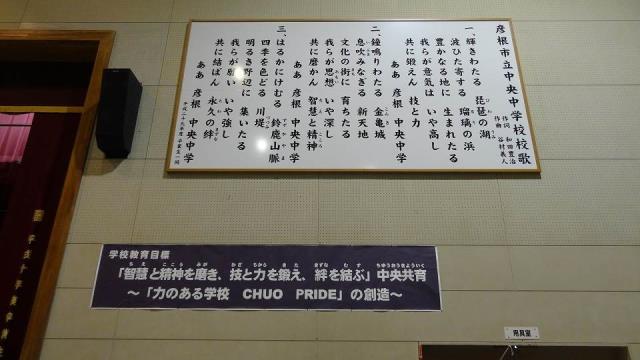 彦根市立中央中学校校歌
作詞 和田豊治
作曲 谷村義人
一、輝きわたる 琵琶の湖
波ひた寄する 瑠璃の浜
豊かなる地に 生まれたる
我らが意気は いや高し
共に鍛えん 技と力
ああ 彦根 中央中学
二、鐘鳴りわたる 金亀城
息吹みなぎる 新天地
文化の街に 育ちたる
我らが思想 いや深し
共に磨かん 智慧と精神
ああ 彦根 中央中学
三、はるかにけむる 鈴鹿山脈
四季を色どる 川堤
明るき野辺に 集いたる
我らが願い いや強し
共に結ばん 永久の絆
ああ 彦根 中央中学
学校教育目標
「智慧と精神を磨き、技と力を鍛え、絆を結ぶ」中央共育
～「力のある学校 CHUO PRIDE」の創造～
用具室